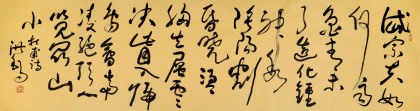 岱宗夫如
何齊
魯青未
了造化鍾
神秀
陰陽割
昏曉盪
胸生層雲
決眥入歸
鳥會當
凌絕頂一
覽眾山
小杜甫詩